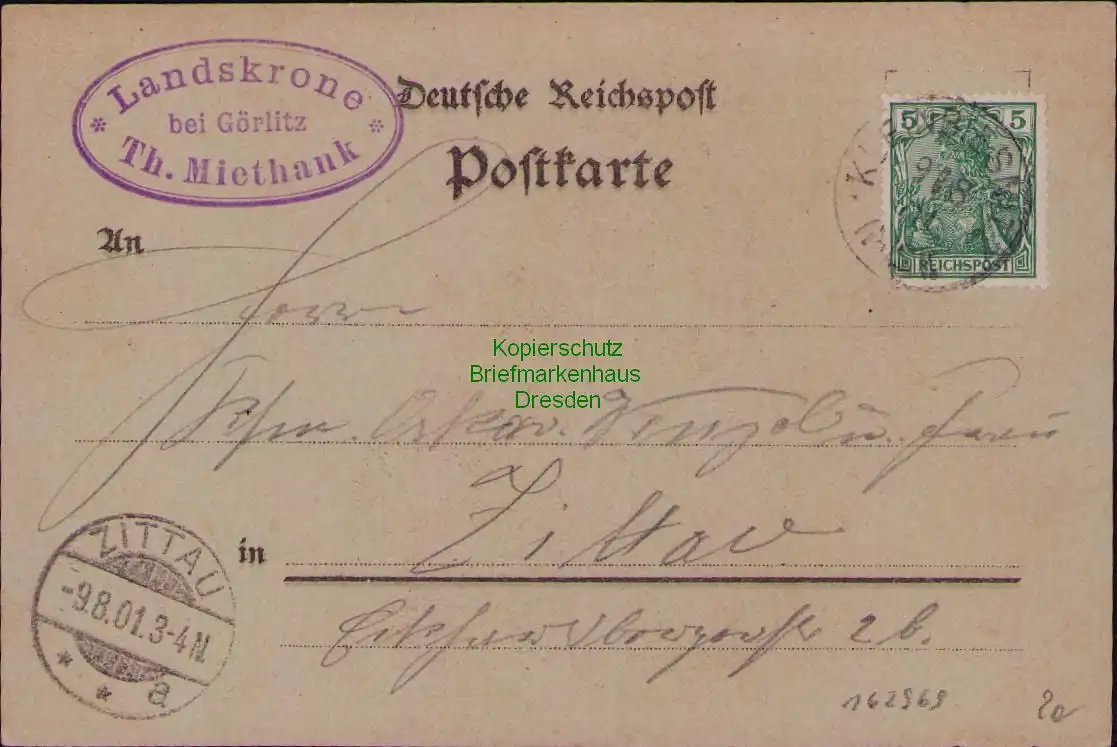 * Landskrone *
bei Görlitz
Th. Miethank
Deutsche Reichspost
Postkarte
5 5
REICHSPOST
An
Herrn
Kopierschutz
Briefmarkenhaus
Dresden
Oskar Wenzel u. Frau
in Zittau
2 b.
ZITTAU
-9.8.01.3-4N.
* * a
162969